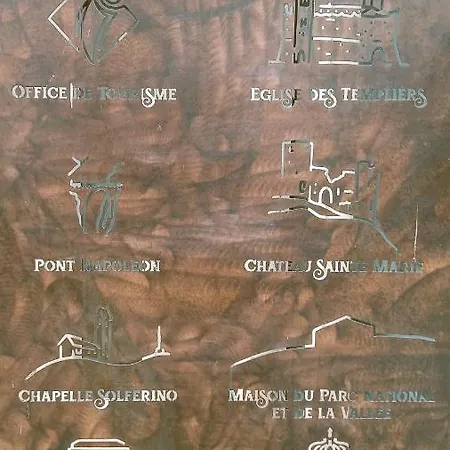 OFFICE DE TOURISME
EGLISE DES TEMPLIERS
PONT NAPOLEON
CHATEAU SAINTE MARIE
CHAPELLE SOLFERINO
MAISON DU PARC NATIONAL
ET DE LA VALLÉE